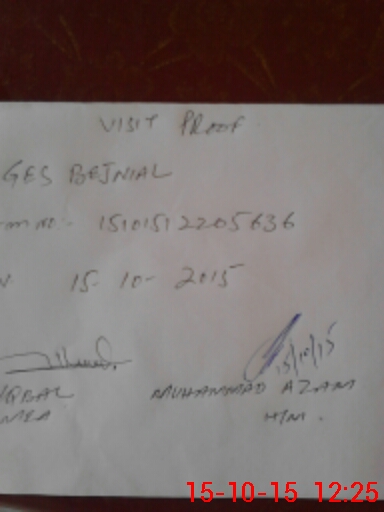 VISIT PROOF
GES BEJNIAL
15101512205636
15-10-2015
15/10/15
IQBAL MUHAMMAD AZAM
MEA H/M.
15-10-15 12:25